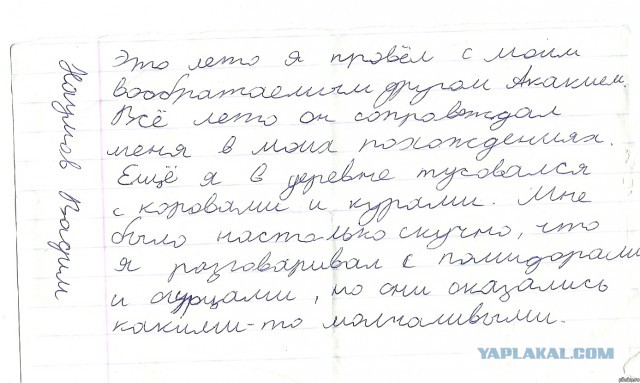 Это лето я провёл с моим
вообратаемым другом Акакием.
Всё лето он соправждал
меня в моих похождениях.
Ещё я в деревне тусовался
с коровами и курами. Мне
было настолько скучно, что
я разговаривал с помидорами
и огурцами, но они оказались
какими-то молчаливыми.
Наумов Вадим
YAPLAKAL.COM